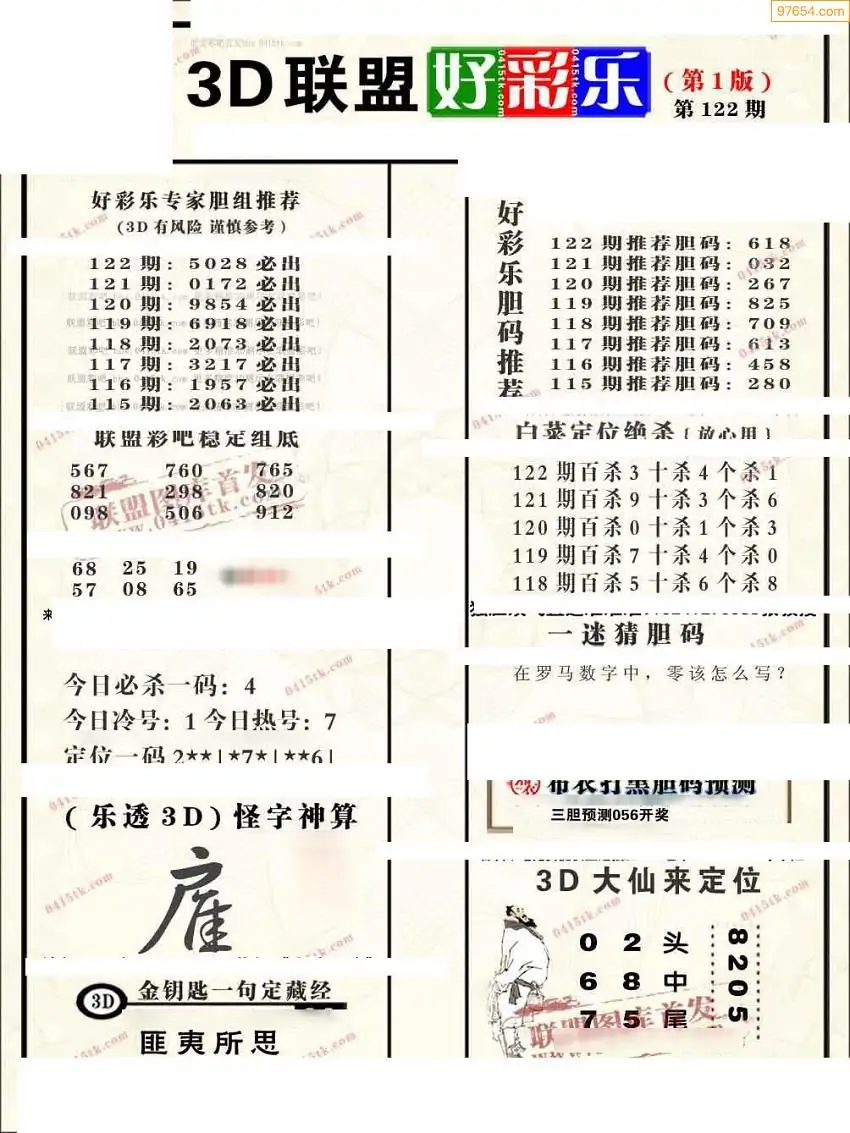 97654.com
3D联盟好彩乐
(第1版)
第122期
好彩乐专家胆组推荐
(3D有风险 谨慎参考)
122期：5028必出
121期：0172必出
120期：9854必出
119期：6918必出
118期：2073必出
117期：3217必出
116期：1957必出
115期：2063必出
联盟彩吧稳定组底
567 760 765
821 298 820
098 506 912
联盟图库首发
68 25 19
57 08 65
来
今日必杀一码：4
今日冷号：1 今日热号：7
定位一码 2★★|★7★|★★6|
(乐透3D)怪字神算
3D
金钥匙一句定藏经
匪夷所思
好彩乐胆码推荐
122期推荐胆码：618
121期推荐胆码：032
120期推荐胆码：267
119期推荐胆码：825
118期推荐胆码：709
117期推荐胆码：613
116期推荐胆码：458
115期推荐胆码：280
白菜定位绝杀{放心用}
122期百杀3十杀4个杀1
121期百杀9十杀3个杀6
120期百杀0十杀1个杀3
119期百杀7十杀4个杀0
118期百杀5十杀6个杀8
一迷猜胆码
在罗马数字中，零该怎么写？
布衣打黑胆码预测
三胆预测056开奖
3D大仙来定位
0 2 头
6 8 中
7 5 尾
8205
联盟图库首发
0415tk.com